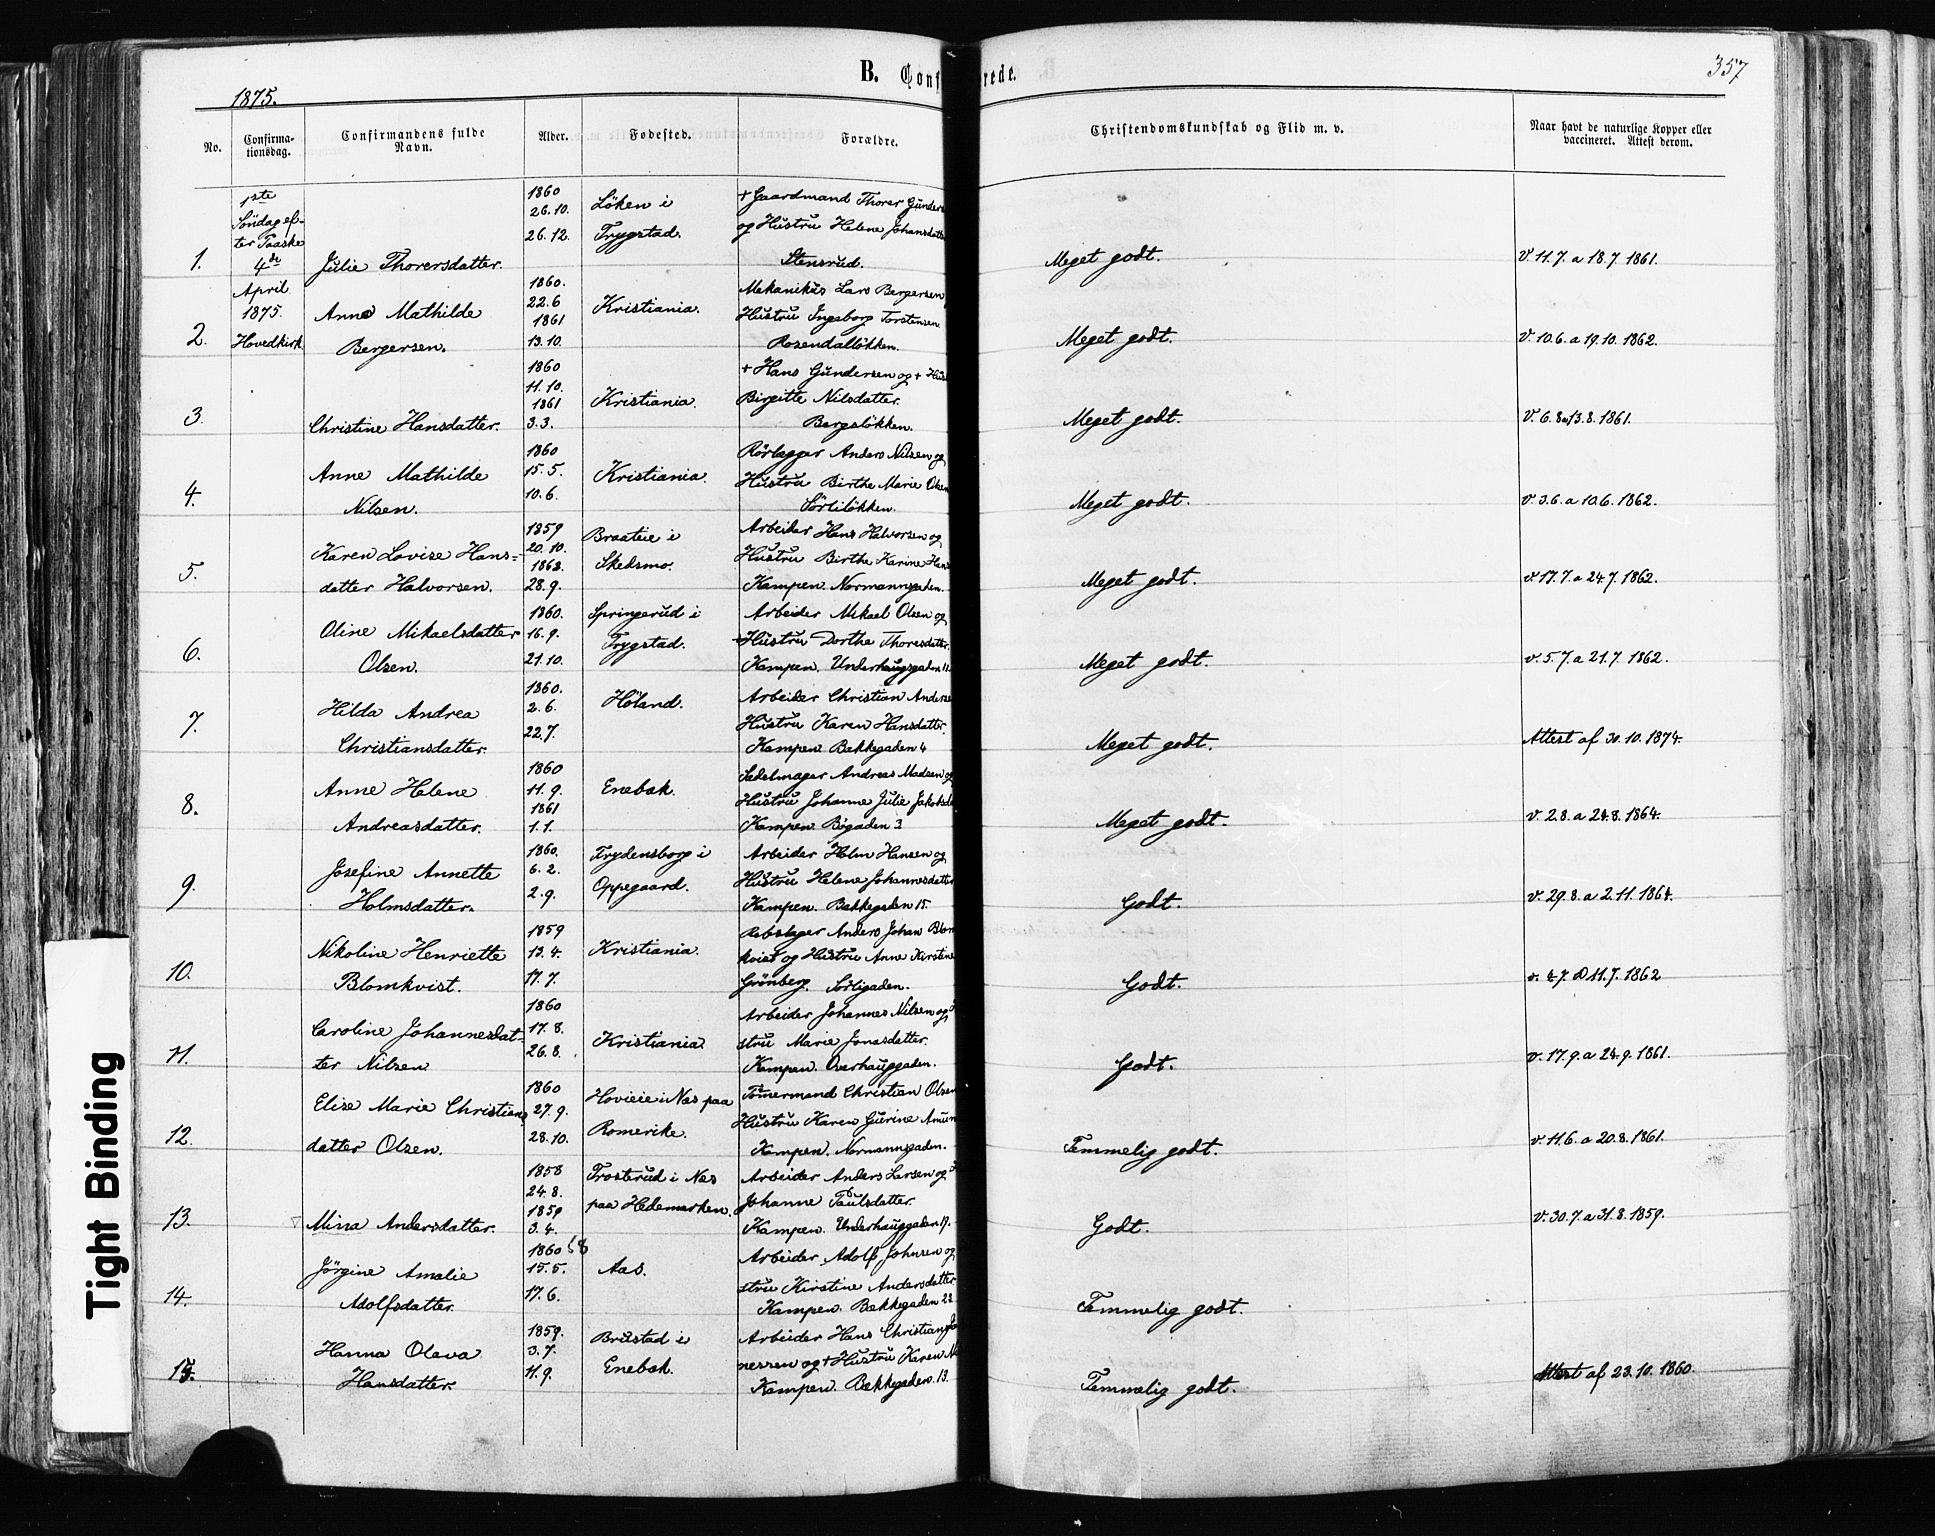 B. Conf rede.
357
1875.
No.
Confirma-
tionsdag.
Confirmandens fulde
Navn.
Alder.
Fødested.
Forældre.
Christendomskundskab og Flid m. v.
Naar havt de naturlige Kopper eller
vaccineret. Attest derom.
1ste
Søndag ef-
ter Paaske
4de
April
1875.
Hovedkirk
1. Julie Thorersdatter.
1860
26.10.
26.12.
Løken i
Trygstad.
+ Gaardmand Thorer Gunders
og Hustru Helene Johansdatt
Stensrud.
Meget godt.
V. 11.7. a 18.7 1861.
2. Anne Mathilde
Bergersen.
1860.
22.6
1861
13.10.
Kristiania.
Mekanikus Lars Bergersen
Hustru Ingeborg Torstensen.
Rosendalløkken.
Meget godt.
V. 10.6. a 19.10. 1862.
3. Christine Hansdatter.
1860
11.10.
1861
3.3.
Kristiania.
+ Hans Gundersen og + Hus
Birgitte Nilsdatter.
Bergsløkken.
Meget godt.
V. 6.8 a 13.8. 1861.
4. Anne Mathilde
Nilsen.
1860
15.5.
10.6.
Kristiania.
Rørlægger Anders Nilsen og
Hustru Birthe Marie Olsen
Sørliløkken.
Meget godt.
V 3.6. a 10.6. 1862.
5. Karen Lovise Hans-
datter Halvorsen.
1859
20.10.
1862.
28.9.
Braateie i
Skedsmo.
Arbeider Hans Halvorsen og
Hustru Birthe Karine Hans
Kampen. Normannsgaden.
Meget godt.
v 17.7. a 24.7. 1862.
6. Oline Mikaelsdatter
Olsen.
1860.
16.9.
21.10.
Springerud i
Trygstad.
Arbeider Mikael Olsen og
Hustru Dorthe Thoresdatter.
Kampen. Underhaugsgaden 11.
Meget godt.
v. 5.7. a 21.7. 1862.
7. Hilda Andrea
Christiansdatter.
1860.
2.6.
22.7.
Høland.
Arbeider Christian Anders
Hustru Karen Hansdatter.
Kampen. Bakkegaden 4
Meget godt.
Attest af 30.10. 1874.
8. Anne Helene
Andreasdatter.
1860
11.9.
1861
1.1.
Enebak.
Sadelmager Andreas Madsen og
Hustru Johanne Julie Jakobsda
Kampen. Bøgaden 3
Meget godt.
v. 2.8. a 24.8. 1864.
9. Josefine Annette
Holmsdatter.
1860.
6.2.
2.9.
Frydensborg i
Oppegaard.
Arbeider Holm Hansen og
Hustru Helene Johannesdatter
Kampen. Bakkegaden 15.
Godt.
v. 29.8. a 2.11. 1864.
10. Nikoline Henriette
Blomkvist.
1859
13.4.
17.7.
Kristiania.
Rebslager Anders Johan Blom
kvist og Hustru Anne Kirstine
Grønberg. Sørligaden.
Godt.
v. 4.7. a 11.7. 1862
11. Caroline Johannesdat-
ter Nilsen
1860
17.8.
26.8.
Kristiania.
Arbeider Johannes Nilsen og
stru Marie Jonasdatter.
Kampen. Overhauggaden.
Godt.
v. 17.9. a 24.9. 1861.
12. Elise Marie Christians
datter Olsen.
1860
27.9.
28.10.
Hovieie i Nas paa
Romerike.
Tømermand Christian Olsen
Hustru Karen Gurine Amun
Kampen. Normannsgaden.
Temmelig godt.
v. 11.6. a 20.8. 1861.
13. Mina Andersdatter.
1858
24.8.
1859
3.4.
Frosterud i Nas
paa Hedemarken.
Arbeider Anders Larsen og
Johanne Paulsdatter.
Kampen. Underhauggaden 17.
Godt.
V. 30.7. a 31.8. 1859.
14. Jørgine Amalie
Adolfsdatter.
1860 58
15.5.
17.6.
Aas.
Arbeider Adolf Johnsen og
stru Kirstine Andersdatter
Kampen. Bakkegaden 22
Temmelig godt.
15. Hanna Olava
Hansdatter.
1859.
3.7.
11.9.
Brustad i
Enebak.
Arbeider Hans Christian Jo
nessen og + Hustru Karen Ni
Kampen. Bakkegaden. 13.
Temmelig godt.
Attest af 23.10. 1860.
Tight Binding